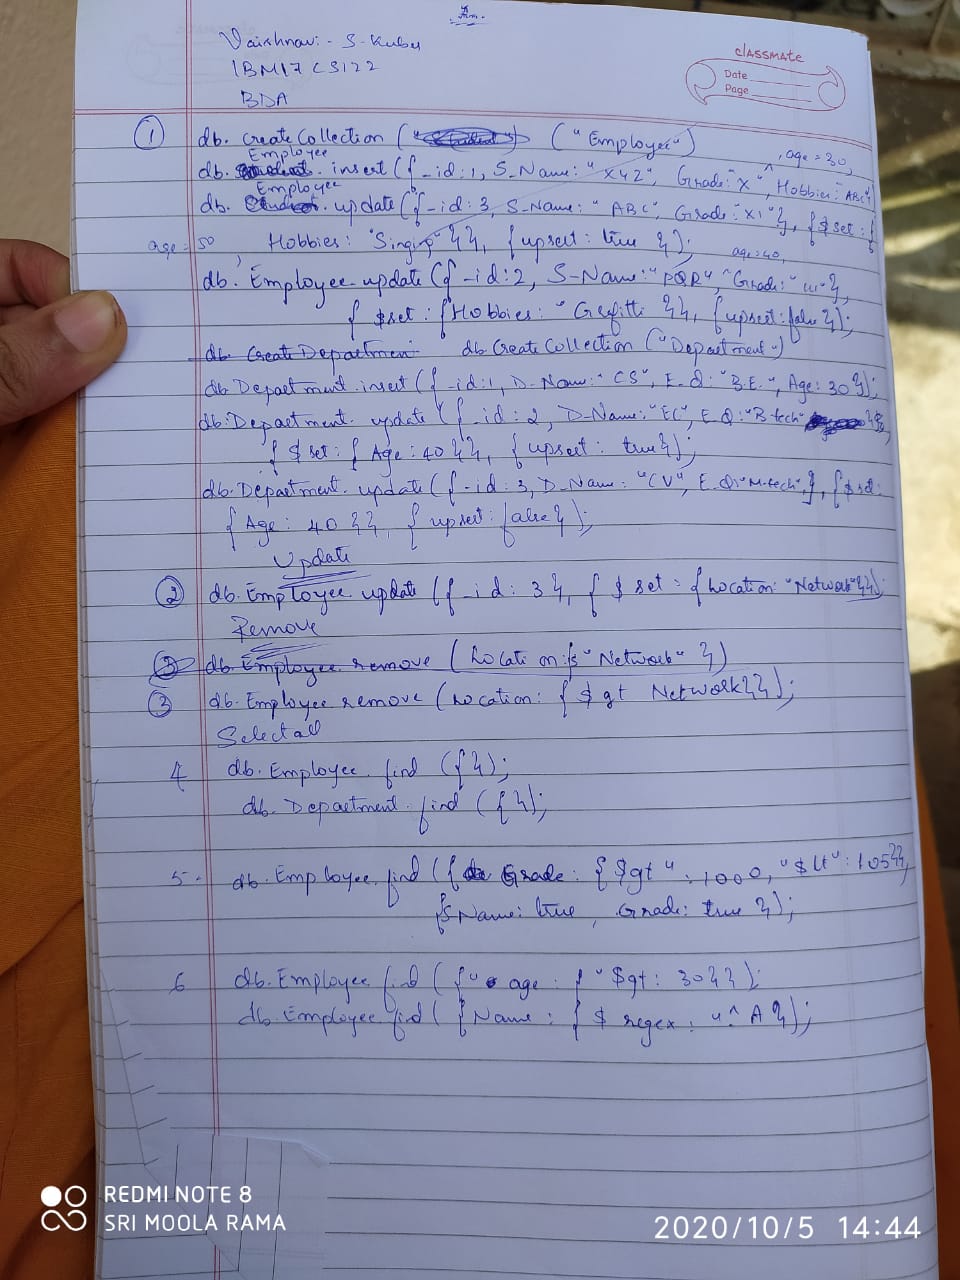 Vaishnavi - S - Kubu
1BM17CS122
BDA
classmate
Date
Page
① db. Create Collection ("Employee")
Employee , age = 30,
db. insert ({ _id: 1, S_Name: "XYZ", Grade: "X", Hobbies: "ABC"})
Employee
db. update ({ _id: 3, S_Name: "ABC", Grade: "XI"}, { $set: {
age = 50 , Hobbies: "Singing" }}, { upsert: true });
age=40,
db. Employee. update ({ _id: 2, S-Name: "PQR", "Grade: "III"},
{ $set: { Hobbies: "Grefitti }}, { upsert: false });
db. Create Department db. Create Collection ("Department")
db. Department. insert ({ _id: 1, D-Name: "CS", E.Q: "B.E.", Age: 30 });
db. Department. update ({ _id: 2, D-Name: "EC", E.Q: "B-tech"
{ $set: { Age: 40 }}, { upsert: true });
db. Department. update ({ _id: 3, D-Name: "CV", E.Q: "M-tech" }, { $set:
{ Age: 40 }}, { upsert: false });
Update
② db. Employee. update ({ _id: 3 }, { $ set: { Location: "Network" }});
Remove
③ db. Employee. remove (Location: { "Network" })
③ db. Employee remove (Location: { $ gt Network }});
Select all
4 db. Employee. find ({ });
db. Department. find ({ });
5. db. Employee. find ({ Grade: { $gt ": 1000, "$lt": 105 }},
{ S Name: true, Grade: true });
6 db. Employee. find ({ " age: { " $gt: 30 }});
db. Employee. find ( { Name: { $ regex: "^ A });
REDMI NOTE 8
SRI MOOLA RAMA
2020/10/5 14:44